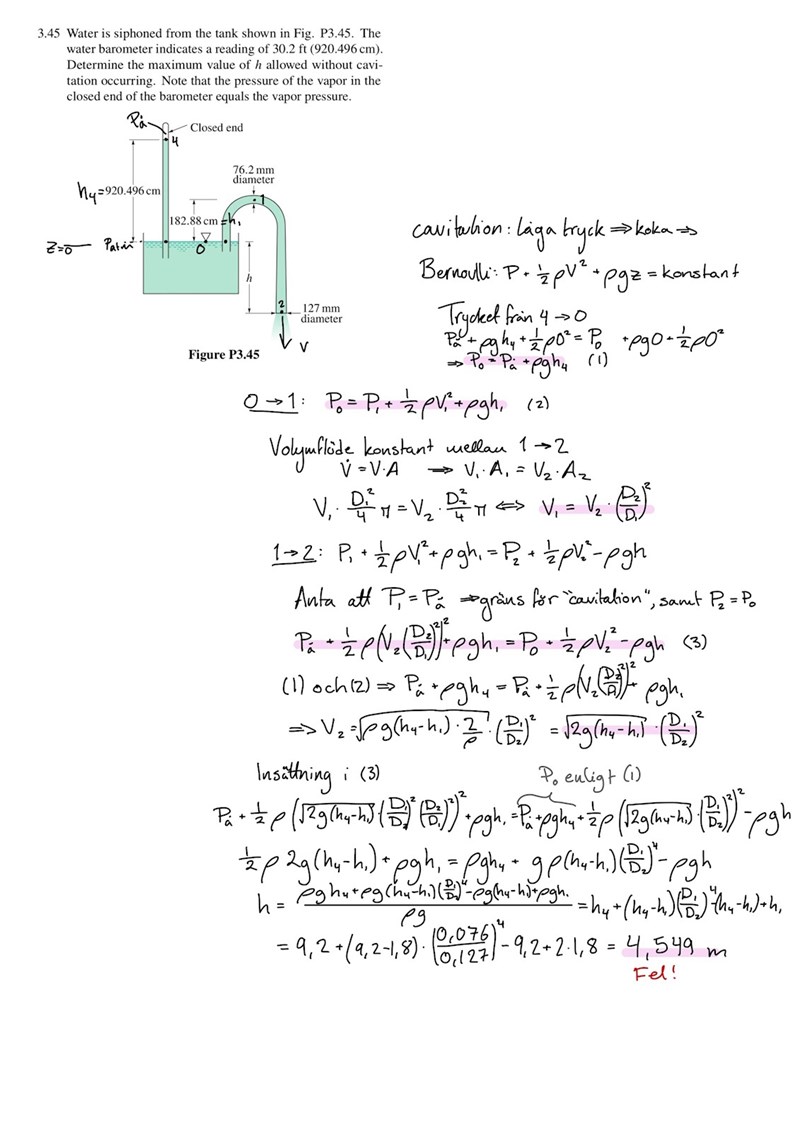 3.45 Water is siphoned from the tank shown in Fig. P3.45. The
water barometer indicates a reading of 30.2 ft (920.496 cm).
Determine the maximum value of h allowed without cavi-
tation occurring. Note that the pressure of the vapor in the
closed end of the barometer equals the vapor pressure.
På
Closed end
4
76.2 mm
diameter
1
h₄=920.496 cm
182.88 cm =h₁
Z=0
Patm
0
h
2
127 mm
diameter
V
Figure P3.45
cavitation: låga tryck ⇒ koka ⇒
Bernoulli: P + ½ρV² + ρgz = konstant
Trycket från 4 → 0
På + ρgh₄ + ½ρ0² = P₀ + ρg0 + ½ρ0²
⇒ P₀ = På + ρgh₄ (1)
0 → 1: P₀ = P₁ + ½ρV₁² + ρgh₁ (2)
Volymflöde konstant mellan 1 → 2
V̇ = V·A ⇒ V₁·A₁ = V₂·A₂
V₁ · D₁²/4 π = V₂ · D₂²/4 π ⇔ V₁ = V₂ · (D₂/D₁)²
1 → 2: P₁ + ½ρV₁² + ρgh₁ = P₂ + ½ρV₂² - ρgh
Anta att P₁ = På ⇒ gräns för "cavitation", samt P₂ = P₀
På + ½ρ(V₂(D₂/D₁)²)² + ρgh₁ = P₀ + ½ρV₂² - ρgh (3)
(1) och (2) ⇒ På + ρgh₄ = På + ½ρ(V₂(D₂/D₁)²)² + ρgh₁
⇒ V₂ = √(ρg(h₄-h₁)·2/ρ) · (D₁/D₂)² = √(2g(h₄-h₁)) · (D₁/D₂)²
Insättning i (3)
P₀ enligt (1)
På + ½ρ(√(2g(h₄-h₁)) (D₁/D₂)² (D₂/D₁)²)² + ρgh₁ = På + ρgh₄ + ½ρ(√(2g(h₄-h₁)) · (D₁/D₂)²)² - ρgh
½ρ 2g(h₄-h₁) + ρgh₁ = ρgh₄ + gρ(h₄-h₁)(D₁/D₂)⁴ - ρgh
h = (ρgh₄ + ρg(h₄-h₁)(D₁/D₂)⁴ - ρg(h₄-h₁) + ρgh₁)/ρg = h₄ + (h₄-h₁)(D₁/D₂)⁴ - (h₄-h₁) + h₁
= 9,2 + (9,2-1,8) · (0,076/0,127)⁴ - 9,2 + 2·1,8 = 4,549 m
Fel!